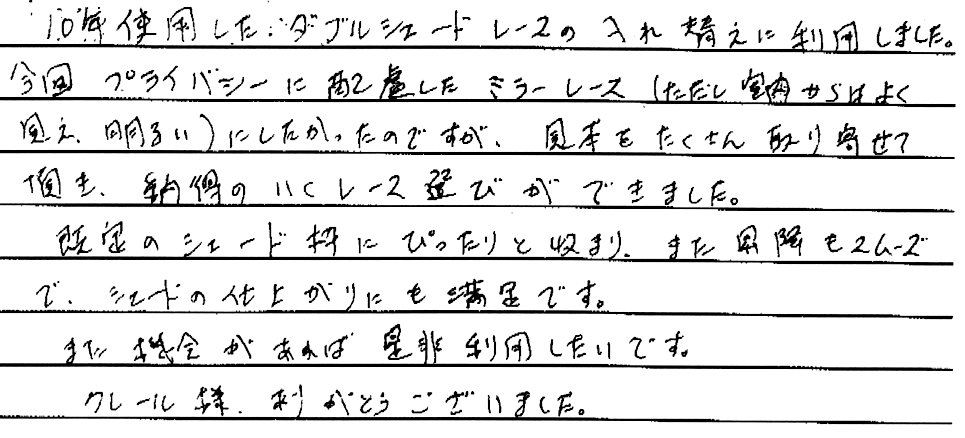 10年使用したダブルシェードレースの入れ替えに利用しました。
今回プライバシーに配慮したミラーレース(ただし室内からはよく
見え、明るい)にしたかったのですが、見本をたくさん取り寄せて
頂き、納得のいくレース選びができました。
既定のシェード枠にぴったりと収まり、また昇降もスムーズ
で、シェードの仕上がりにも満足です。
また機会があれば是非利用したいです。
クレール様、有りがとうございました。